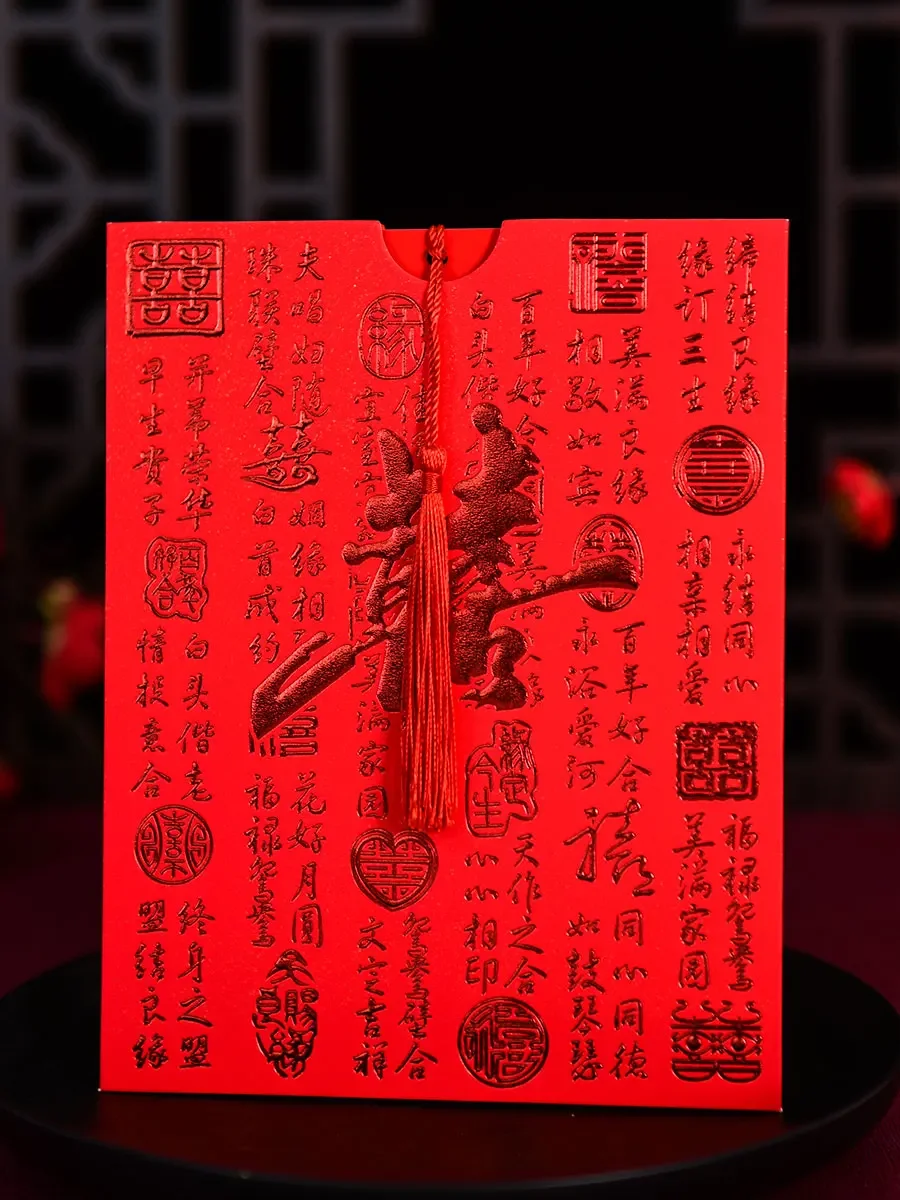 缔结良缘
缘订三生
永结同心
相亲相爱
囍
福禄鸳鸯
美满家园
囍
美满良缘
相敬如宾
百年好合
永浴爱河
禧
同心同德
如鼓琴瑟
百年好合
白头偕
缘定今生
天作之合
心心相印
禧
缘
宜室宜家
美满家园
囍
鸳鸯璧合
文定吉祥
夫唱妇随
珠联璧合
囍
姻缘相
白首成约
花好月圆
福禄鸳鸯
天赐良缘
囍
并蒂荣华
早生贵子
白头偕老
情投意合
囍
终身之盟
盟结良缘